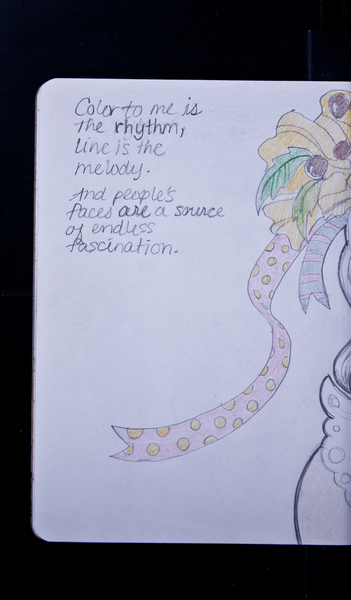 Color to me is
the rhythm,
line is the
melody.
And people's
faces are a source
of endless
fascination.